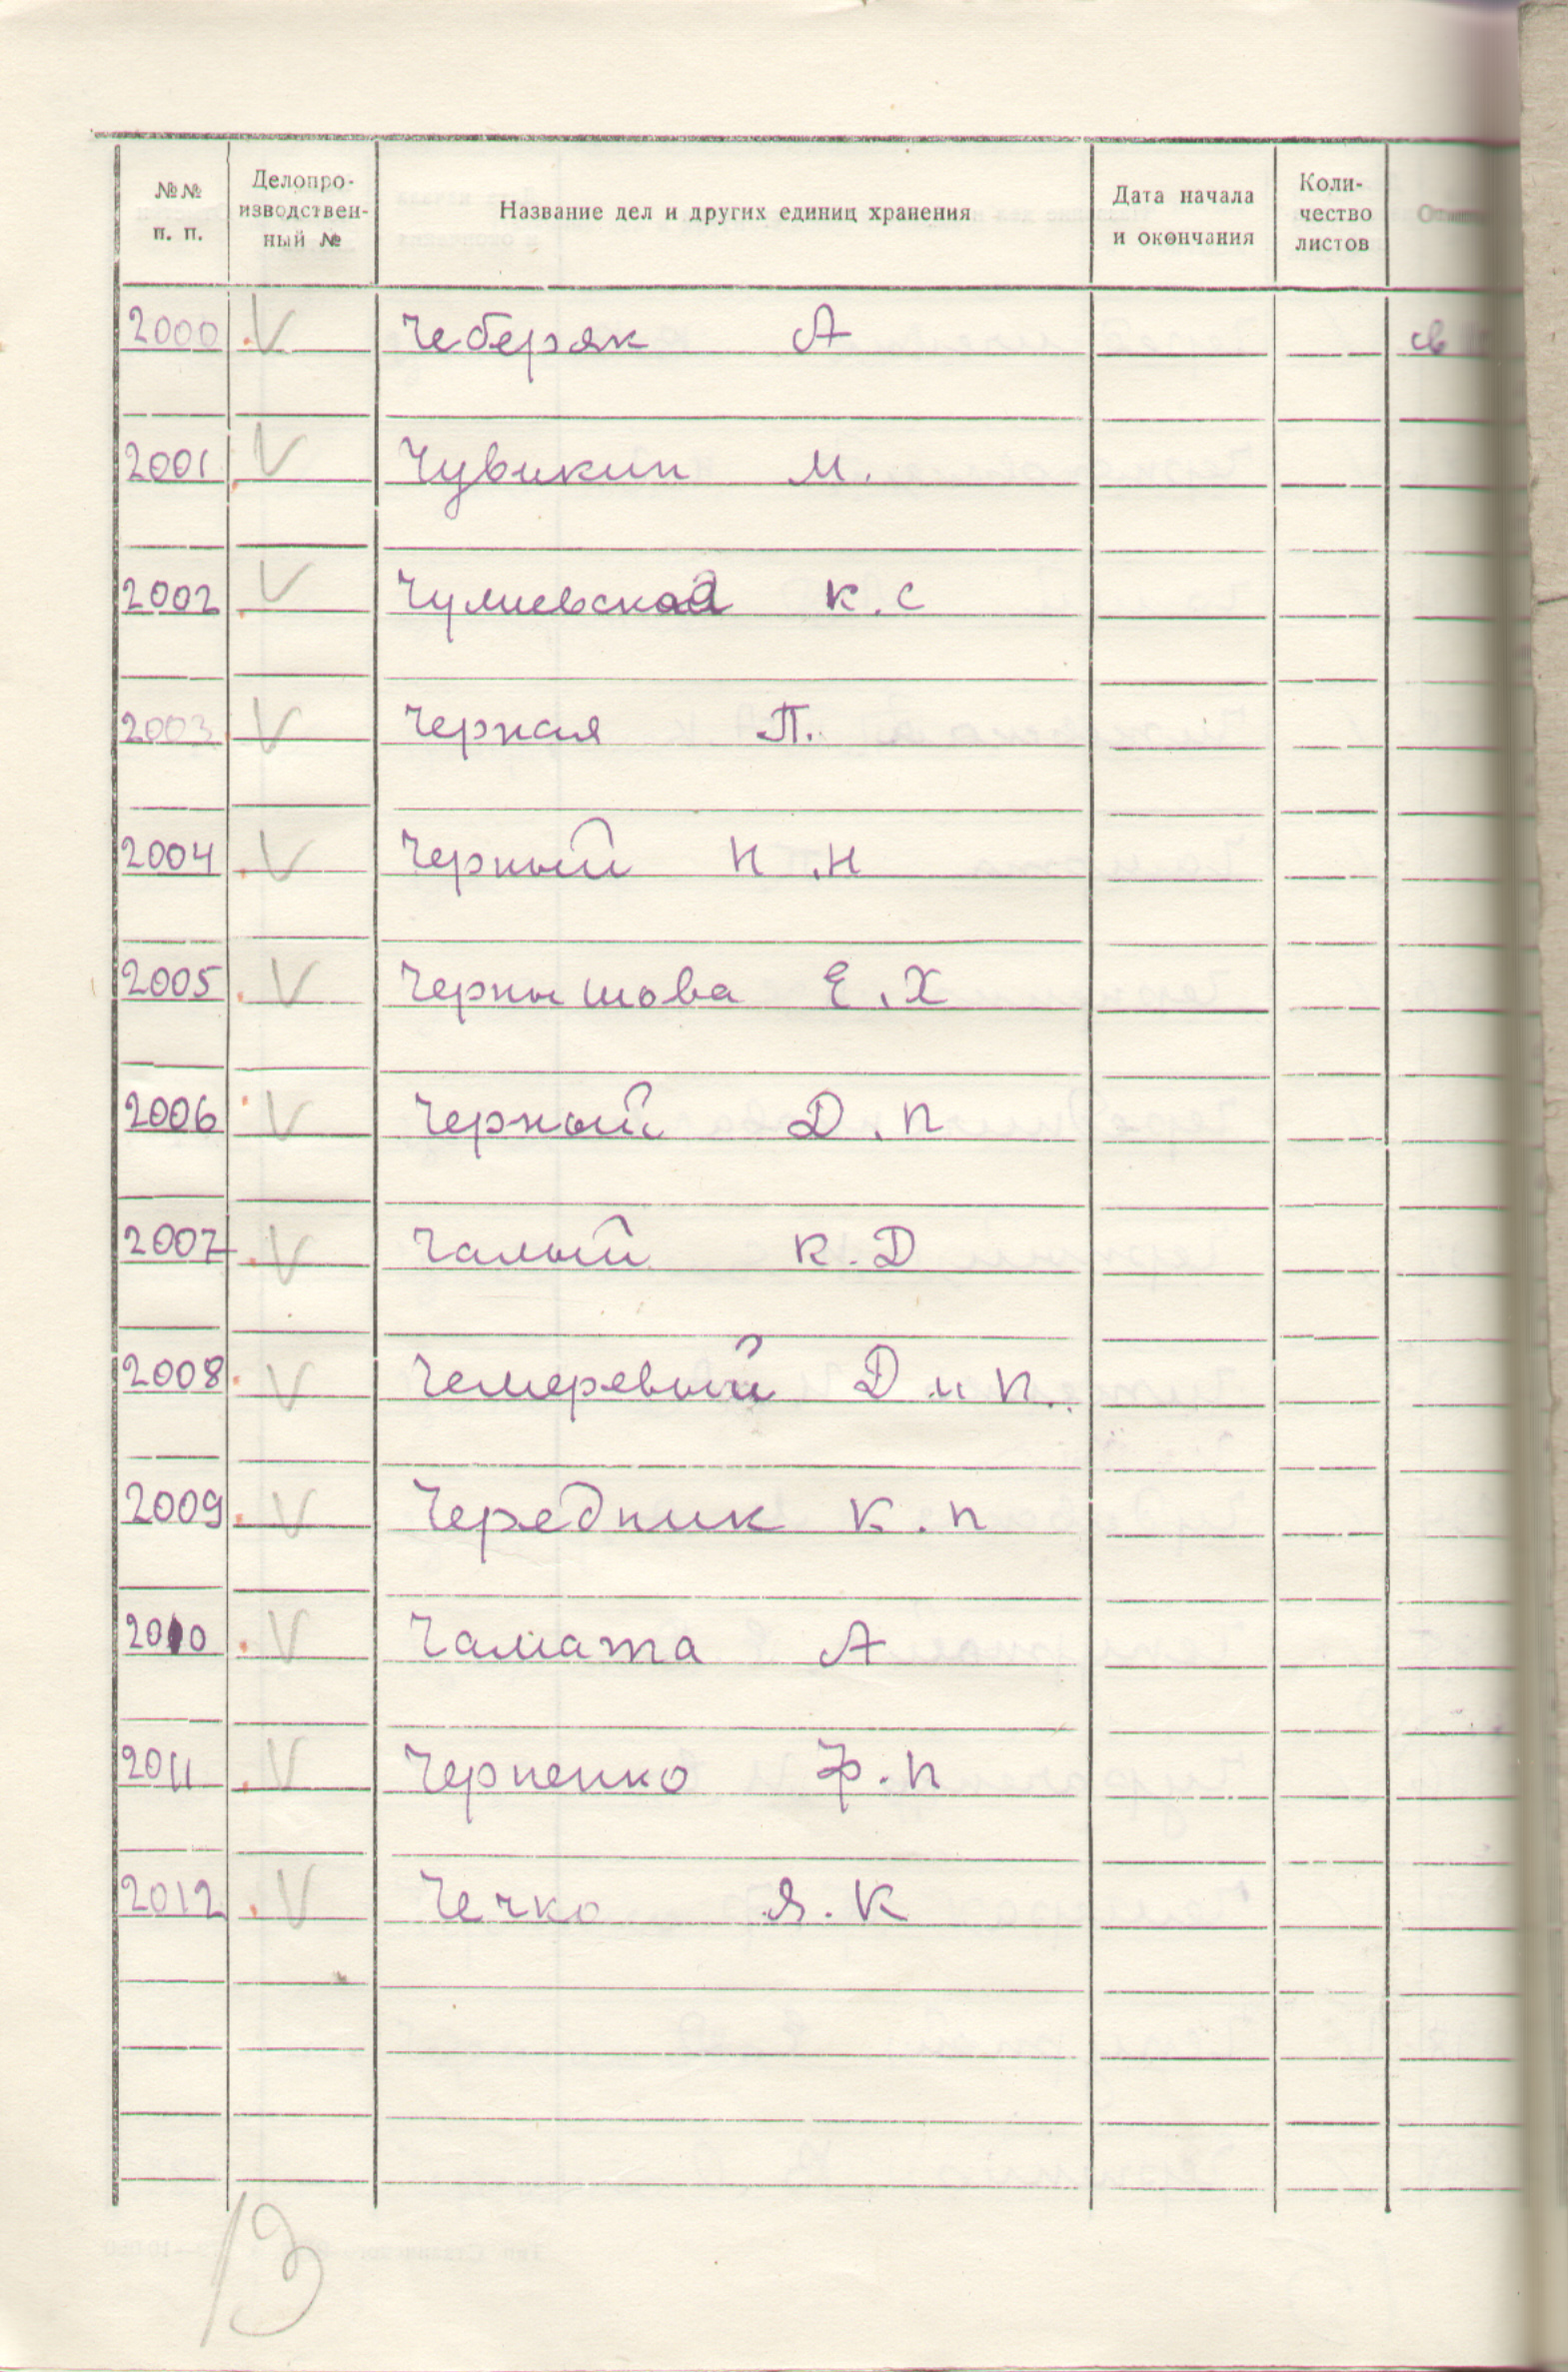 №№ п. п. Делопро-изводствен-ный № Название дел и других единиц хранения Дата начала и окончания Коли-чество листов
2000 V Чеберяк А св
2001 V Чувикин М.
2002 V Чумиевская К.С
2003 V Черная П.
2004 V Черный Н.Н
2005 V Чернышова Е.Х
2006 V Черный Д.П
2007 V Чалый К.Д
2008 V Чемеревый Д и П.
2009 V Чередник К.П
2010 V Чамата А
2011 V Черненко Ф.П
2012 V Чечко Я.К
13